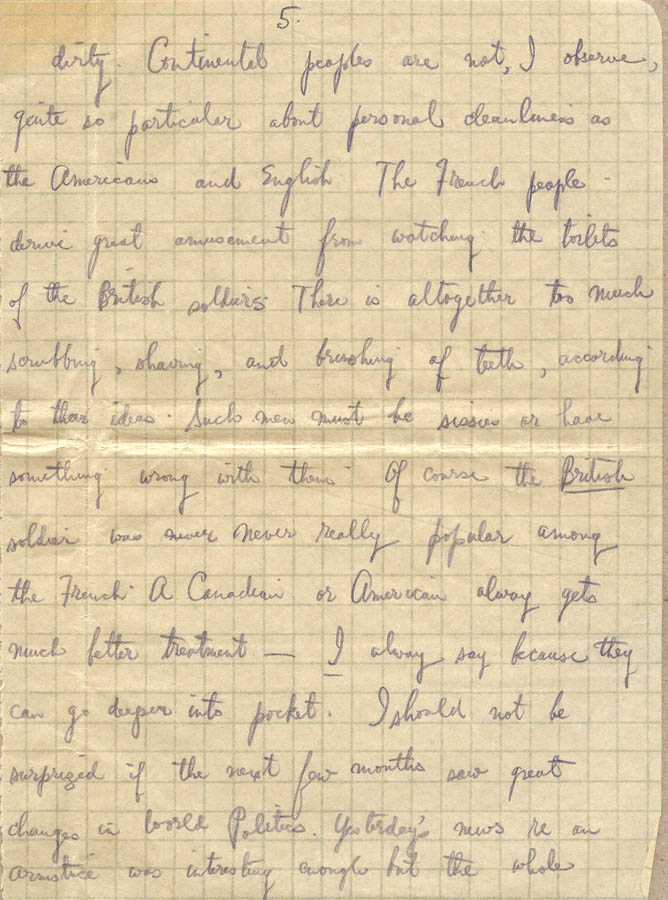 5.
dirty. Continental peoples are not, I observe,
quite so particular about personal cleanliness as
the Americans and English The French people
derive great amusement from watching the toilets
of the British soldiers. There is altogether too much
scrubbing, shaving, and brushing of teeth, according
to their ideas. Such men must be sissies or have
something wrong with them. Of course the British
soldier was never never really popular among
the French. A Canadian or American alway gets
much better treatment — I alway say because they
can go deeper into pocket. I should not be
surprized if the next few months saw great
changes in World Politics. Yesterday's news re an
armistice was interesting enough but the whole